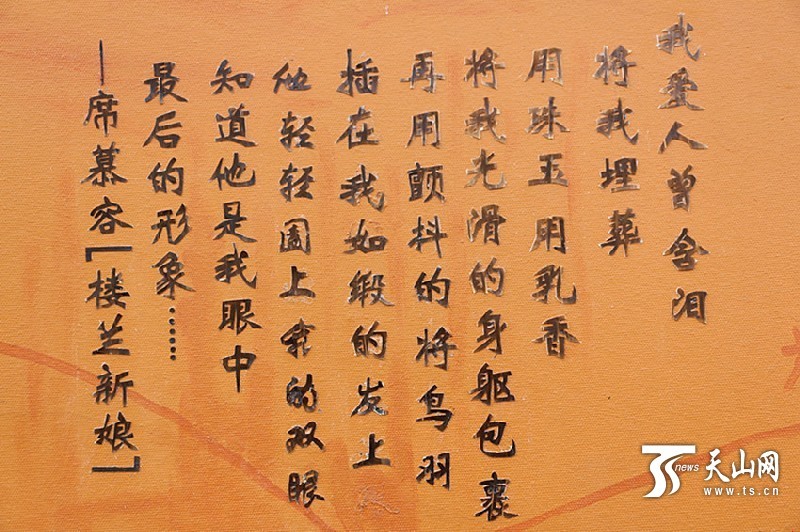 我爱人曾含泪
将我埋葬
用珠玉用乳香
将我光滑的身躯包裹
再用颤抖的将鸟羽
插在我如缎的发上
他轻轻阖上我的双眼
知道他是我眼中
最后的形象……
—席慕容[楼兰新娘]
TS news 天山网
www.ts.cn